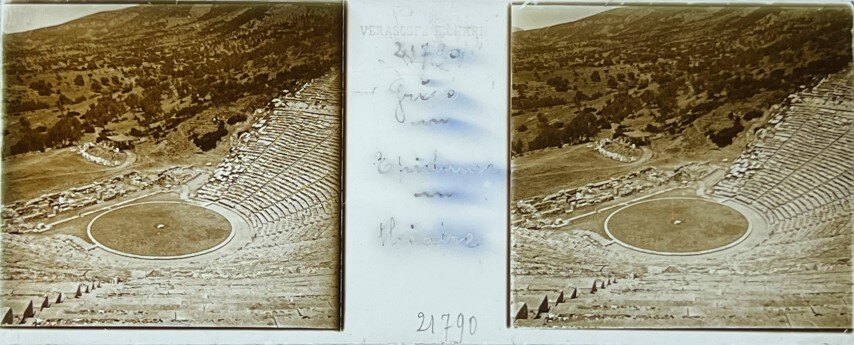 VERASCOPE RICHARD
21790
Grèce
Epidaure
théatre
21790